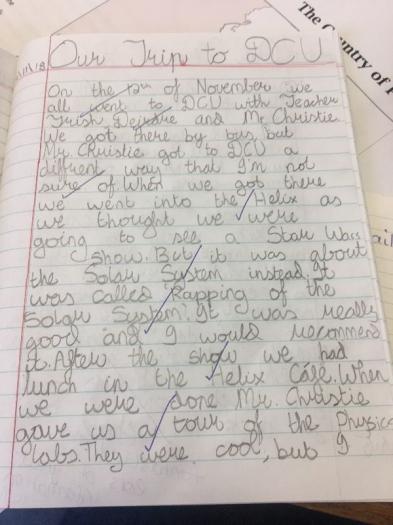 The Country of
11/18
Our Trip to DCU
On the 12th of November we
all went to DCU with Teacher
Trish, Deirdre and Mr Christie
We got there by bus, but
Mr. Christie got to DCU a
diffrent way that I'm not
sure of. When we got there
we went into the Helix as
we thought we were
going to see a Star Wars
show. But it was about
the Solar System instead. It
was called Rapping of the
Solar System. It was really
good and I would recommend
it. After the show we had
lunch in the Helix Cafe. When
we were done Mr. Christie
gave us a tour of the Physics
labs. They were cool, but I